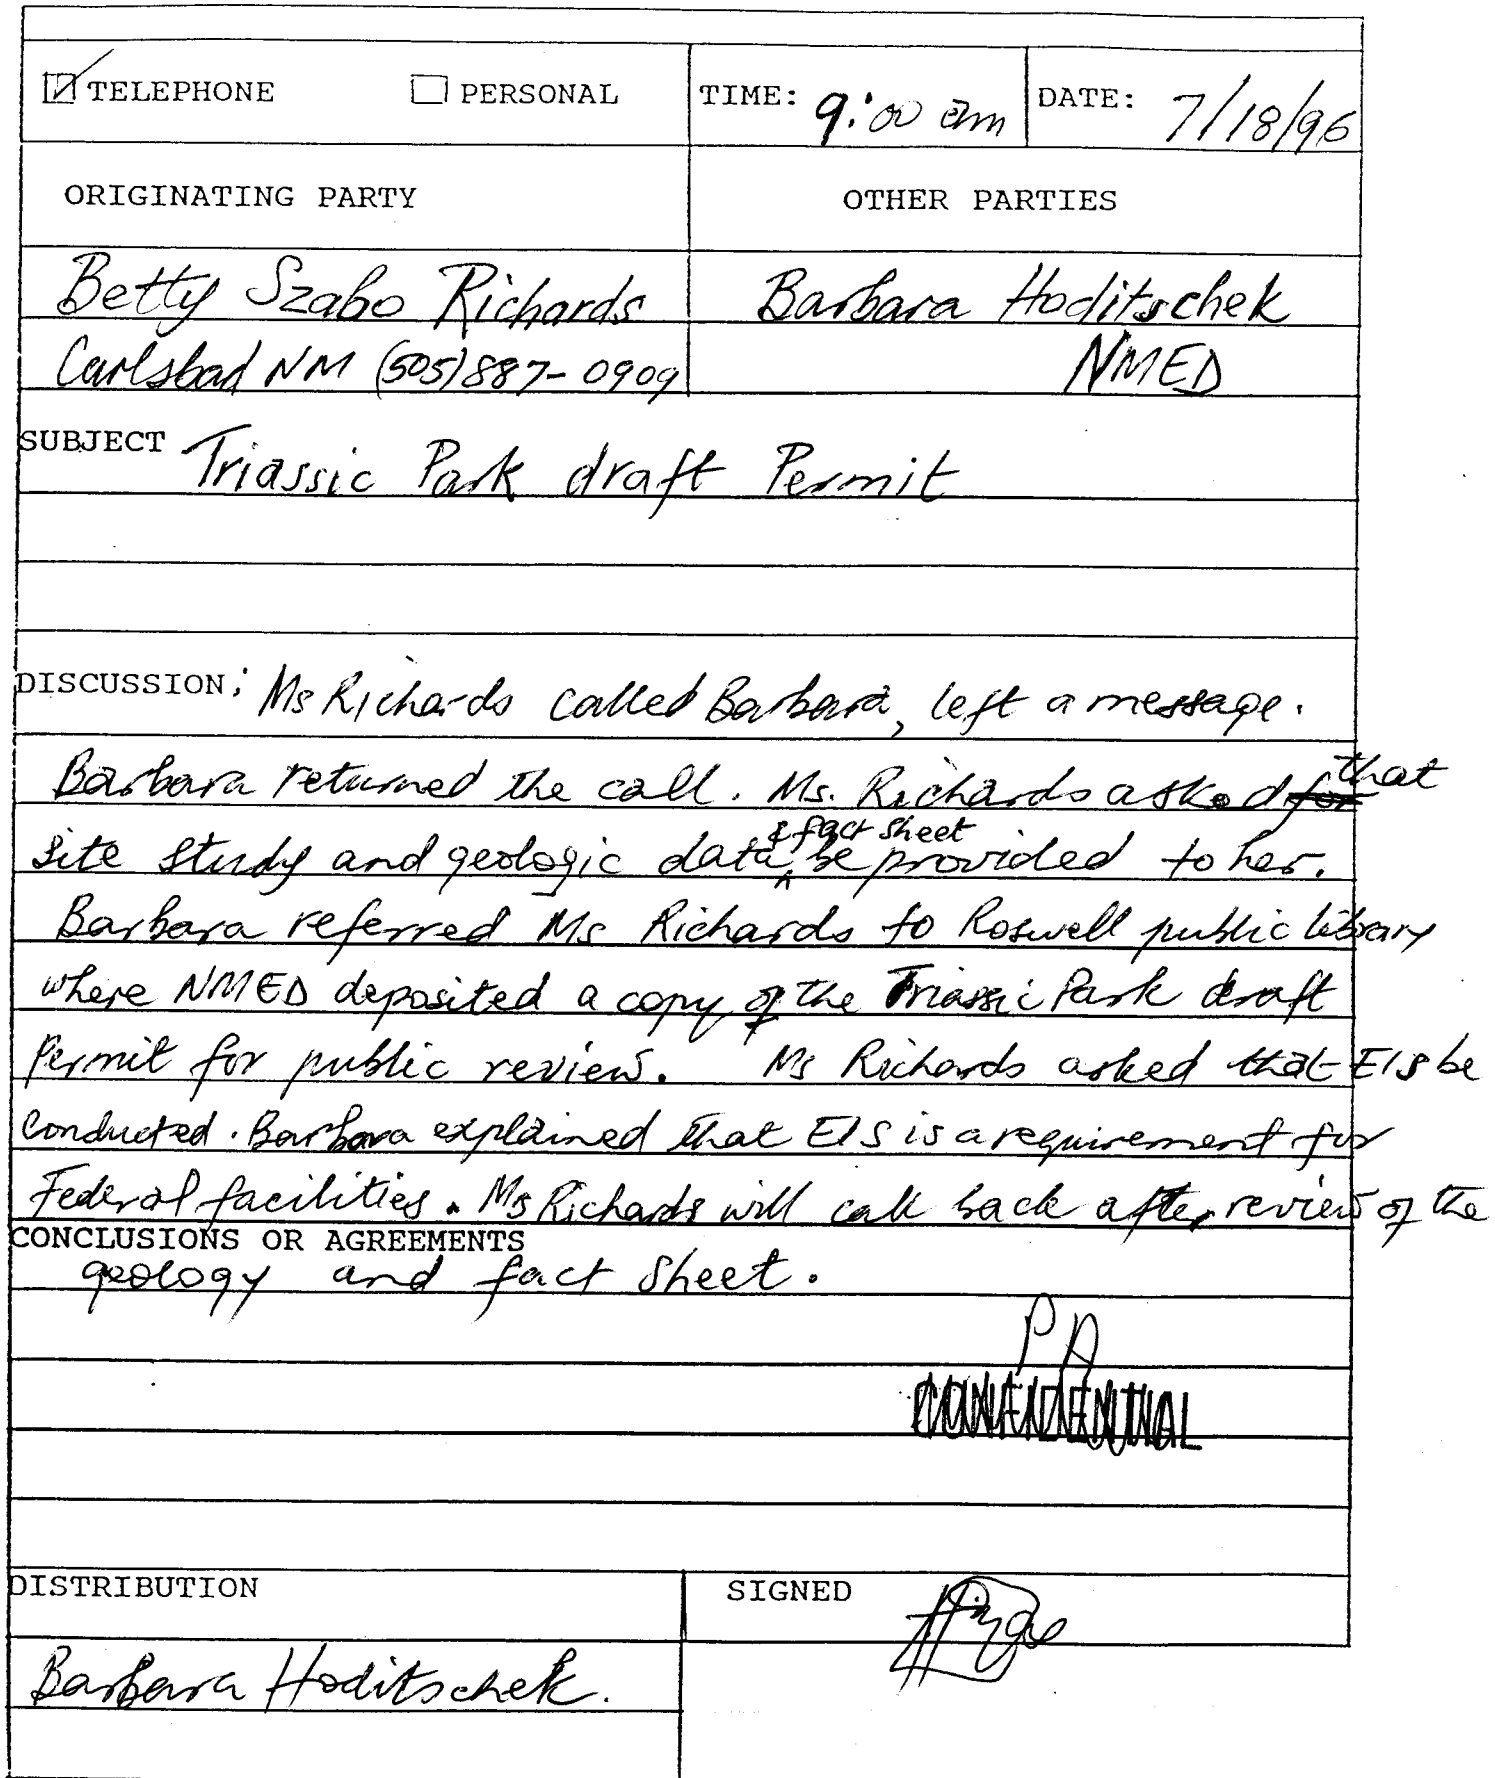 TELEPHONE PERSONAL TIME: 9:00 am DATE: 7/18/96
ORIGINATING PARTY OTHER PARTIES
Betty Szabo Richards Barbara Hoditschek
Carlsbad NM (505)887-0909 NMED
SUBJECT Triassic Park draft Permit
DISCUSSION: Ms Richards called Barbara, left a message.
Barbara returned the call. Ms. Richards asked for that
site study and geologic data & fact sheet be provided to her.
Barbara referred Ms Richards to Roswell public library
where NMED deposited a copy of the Triassic Park draft
Permit for public review. Ms Richards asked that EIS be
conducted. Barbara explained that EIS is a requirement for
Federal facilities. Ms Richards will call back after review of the
CONCLUSIONS OR AGREEMENTS
geology and fact sheet.
CONFIDENTIAL
DISTRIBUTION SIGNED
Barbara Hoditschek.